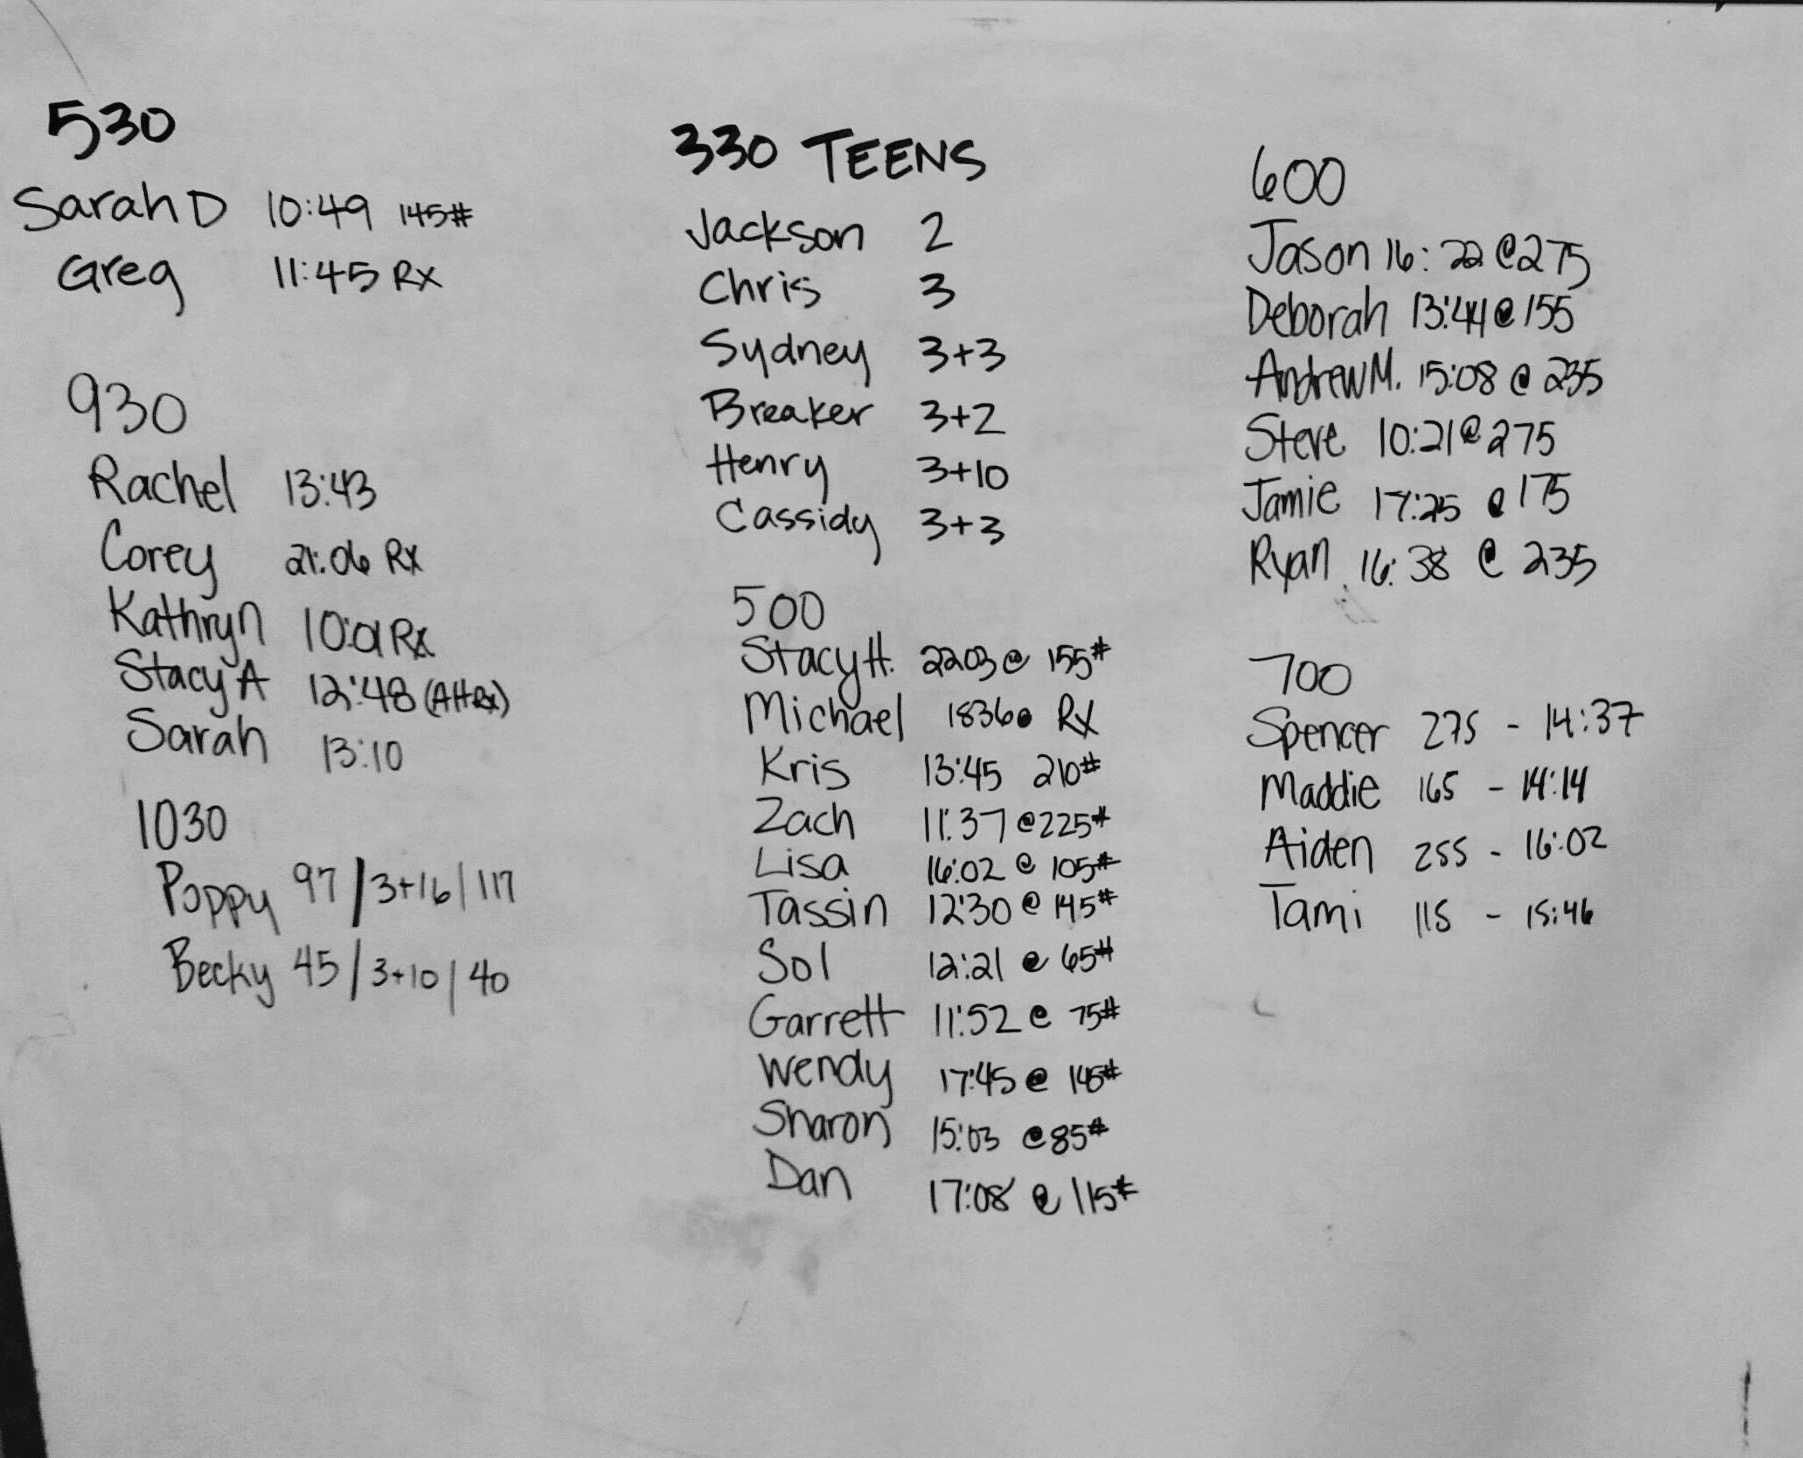 530
Sarah D 10:49 145#
Greg 11:45 Rx
930
Rachel 13:43
Corey 21:06 Rx
Kathryn 10:01 Rx
Stacy A 12:48
Sarah 13:10
1030
Poppy 97 / 3+16 / 117
Becky 45 / 3+10 / 40
330 TEENS
Jackson 2
Chris 3
Sydney 3+3
Breaker 3+2
Henry 3+10
Cassidy 3+3
500
Stacy H. 2203 @ 155#
Michael 1836 @ Rx
Kris 13:45 210#
Zach 11:37 @ 225#
Lisa 16:02 @ 105#
Tassin 12:30 @ 145#
Sol 12:21 @ 65#
Garrett 11:52 @ 75#
Wendy 17:45 @ 145#
Sharon 15:03 @ 85#
Dan 17:08 @ 115#
600
Jason 16:22 @ 275
Deborah 13:44 @ 155
Andrew M. 15:08 @ 235
Steve 10:21 @ 275
Jamie 17:25 @ 175
Ryan 16:38 @ 235
700
Spencer 275 - 14:37
Maddie 165 - 14:14
Aiden 255 - 16:02
Tami 115 - 15:46